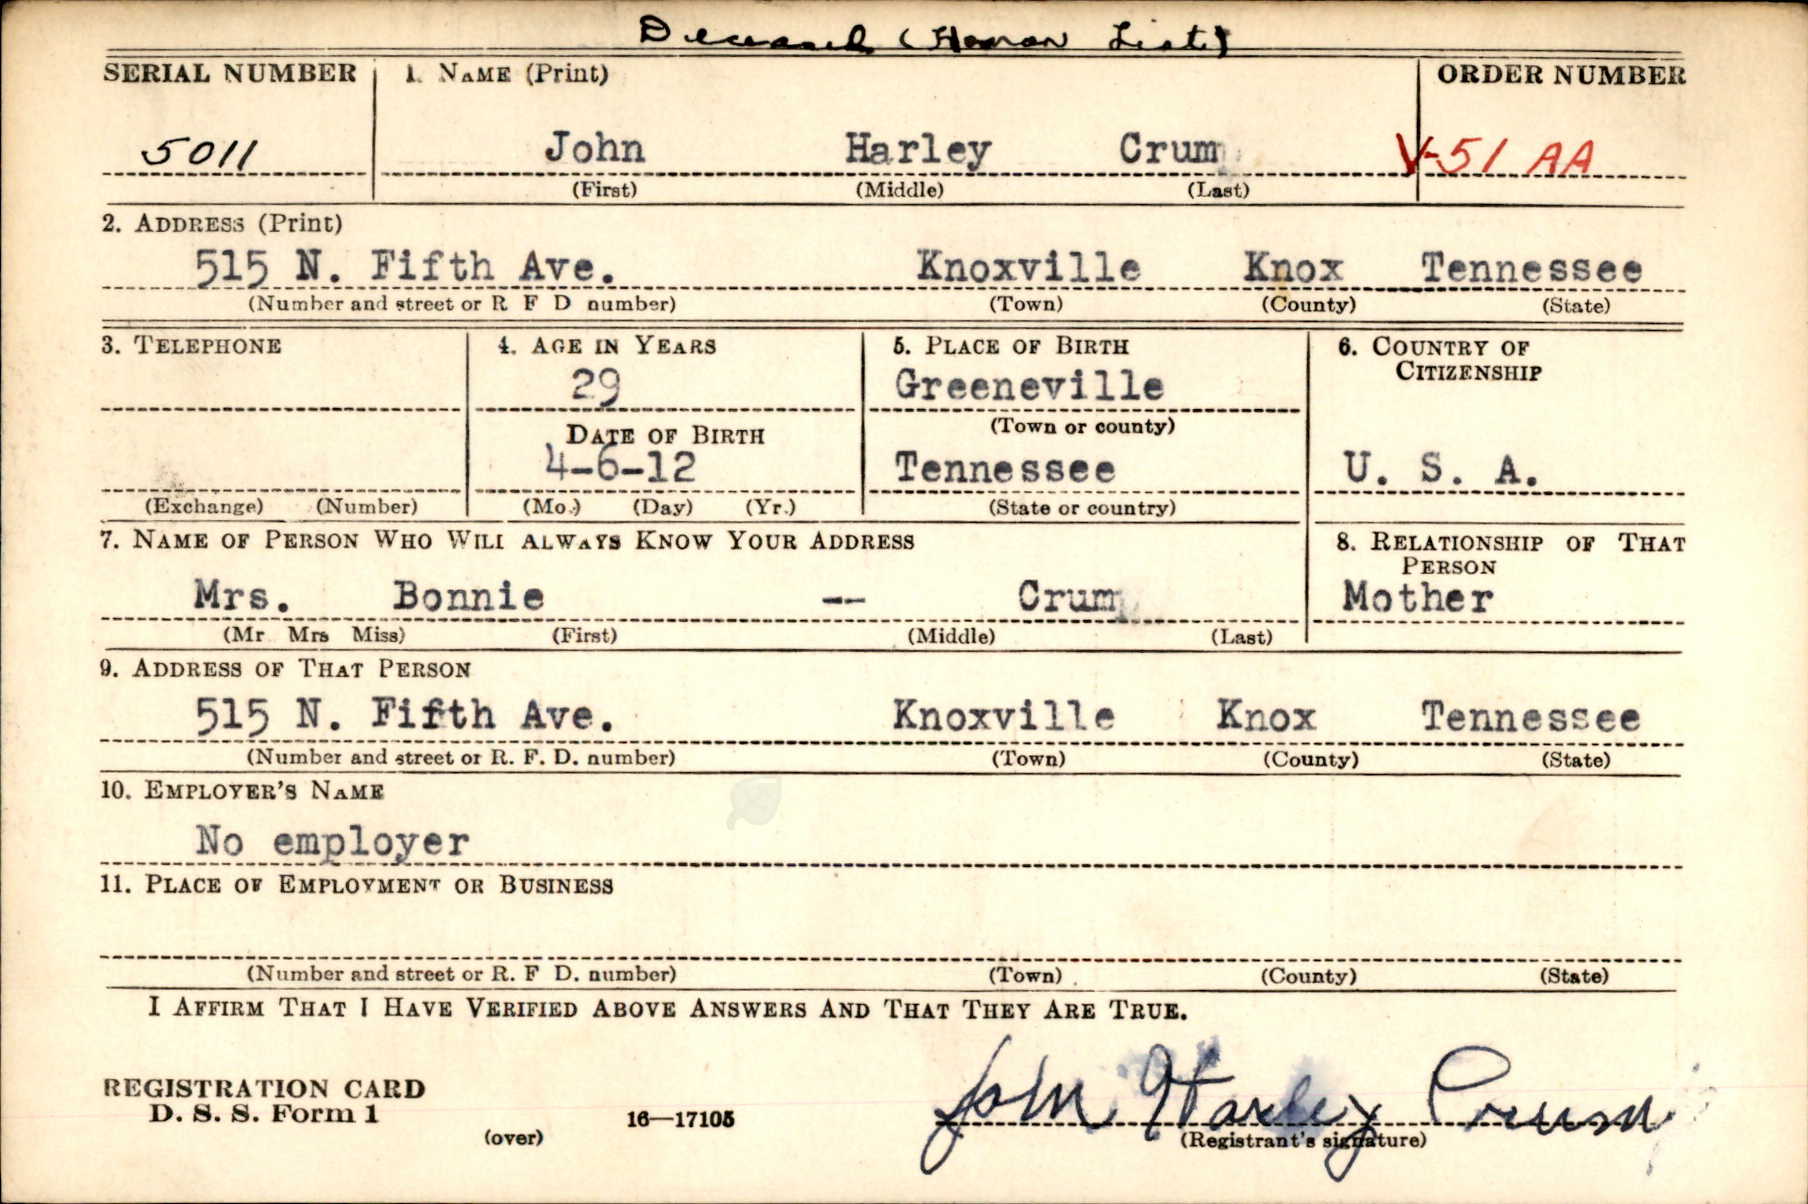 Deceased (Honor List)
SERIAL NUMBER 1. NAME (Print) ORDER NUMBER
5011 John Harley Crum V-51 AA
(First) (Middle) (Last)
2. ADDRESS (Print)
515 N. Fifth Ave. Knoxville Knox Tennessee
(Number and street or R F D number) (Town) (County) (State)
3. TELEPHONE 4. AGE IN YEARS 5. PLACE OF BIRTH 6. COUNTRY OF CITIZENSHIP
29 Greeneville
DATE OF BIRTH (Town or county)
4-6-12 Tennessee U. S. A.
(Exchange) (Number) (Mo.) (Day) (Yr.) (State or country)
7. NAME OF PERSON WHO WILL ALWAYS KNOW YOUR ADDRESS 8. RELATIONSHIP OF THAT PERSON
Mrs. Bonnie -- Crum Mother
(Mr Mrs Miss) (First) (Middle) (Last)
9. ADDRESS OF THAT PERSON
515 N. Fifth Ave. Knoxville Knox Tennessee
(Number and street or R. F. D. number) (Town) (County) (State)
10. EMPLOYER'S NAME
No employer
11. PLACE OF EMPLOYMENT OR BUSINESS
(Number and street or R. F D. number) (Town) (County) (State)
I AFFIRM THAT I HAVE VERIFIED ABOVE ANSWERS AND THAT THEY ARE TRUE.
REGISTRATION CARD
D. S. S. Form 1 16—17105 John Harley Crum
(over) (Registrant's signature)